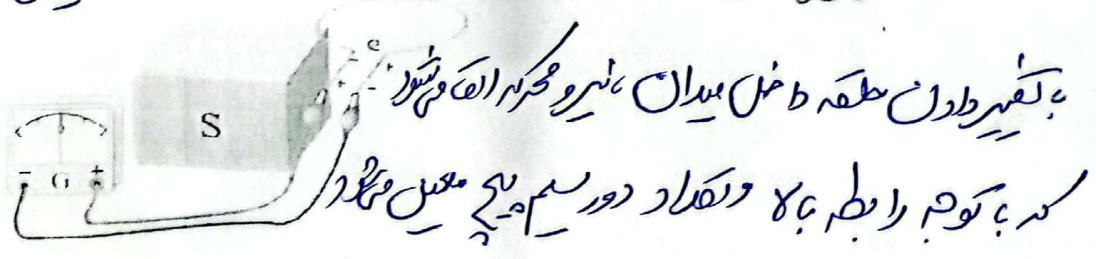 با تغییر دادن حلقه داخل میدان، نیرو محرکه القا می‌شود
که با توجه رابطه بالا و تعداد دور سیم پیچ معین می‌شود
S
- G +